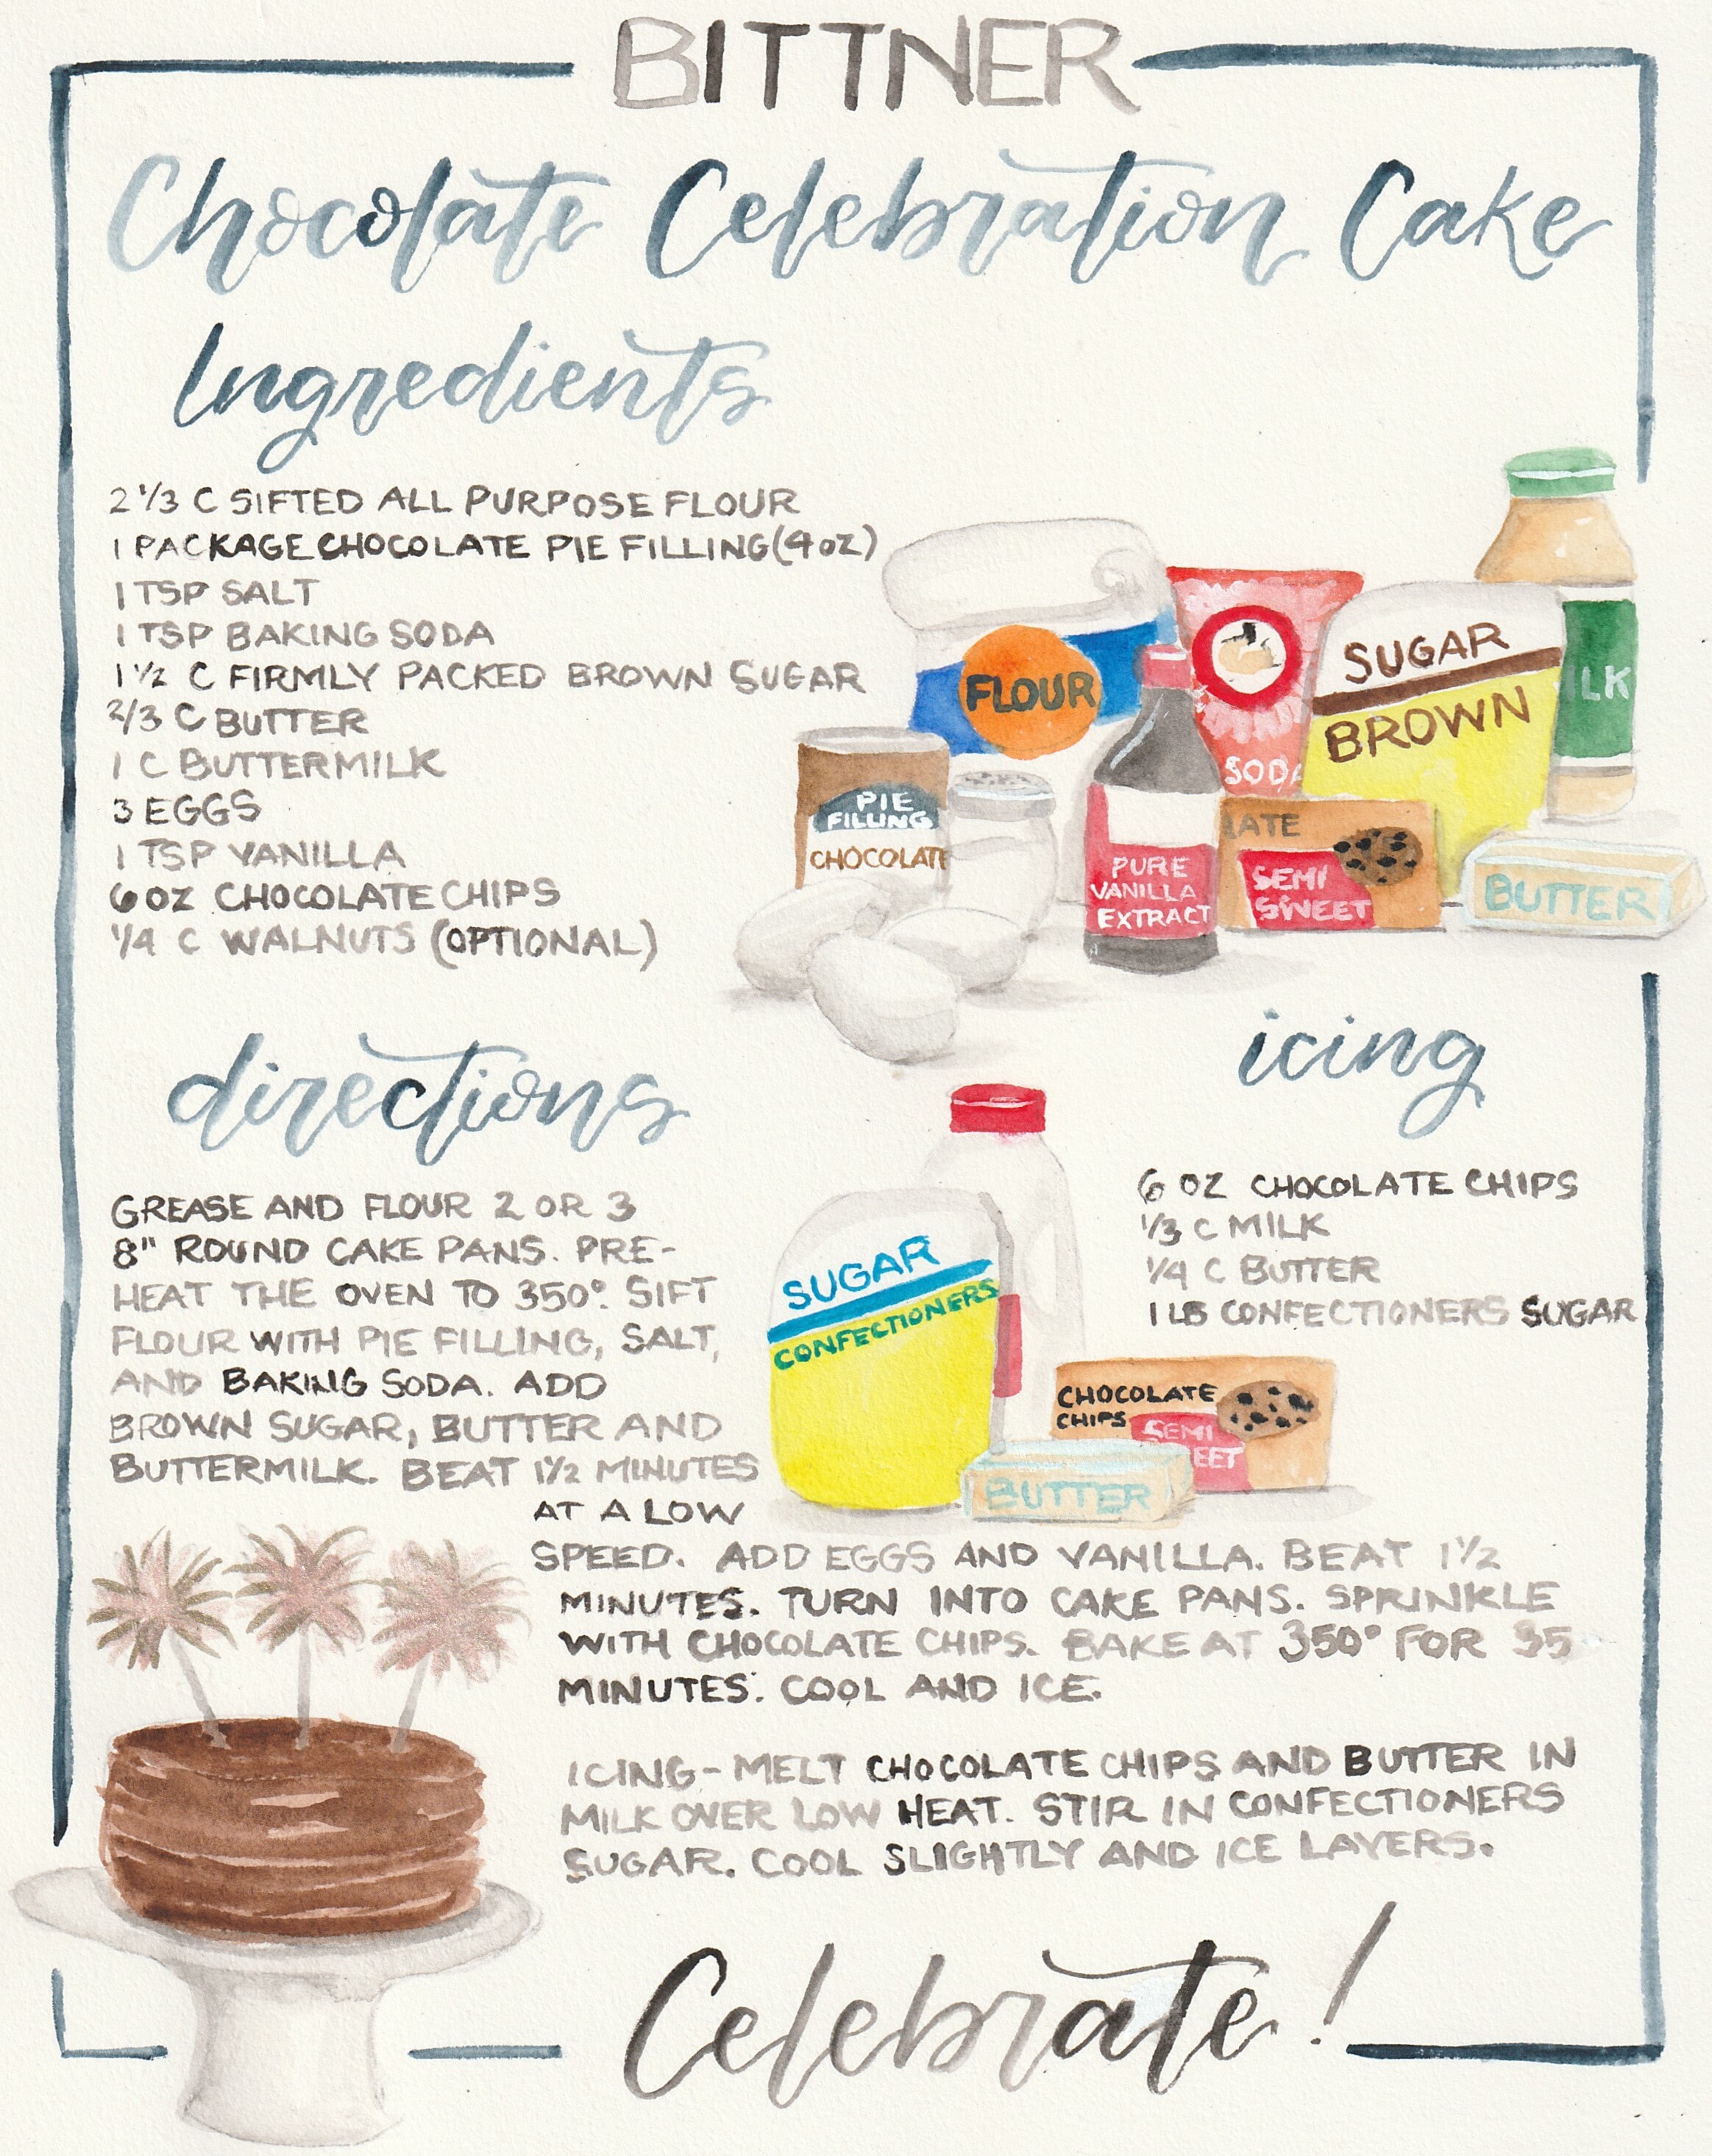 BITTNER
Chocolate Celebration Cake
Ingredients
2 1/3 C SIFTED ALL PURPOSE FLOUR
1 PACKAGE CHOCOLATE PIE FILLING (4 OZ)
1 TSP SALT
1 TSP BAKING SODA
1 1/2 C FIRMLY PACKED BROWN SUGAR
2/3 C BUTTER
1 C BUTTERMILK
3 EGGS
1 TSP VANILLA
6 OZ CHOCOLATE CHIPS
1/4 C WALNUTS (OPTIONAL)
FLOUR
SODA
SUGAR
BROWN
ILK
PIE
FILLING
CHOCOLATE
PURE
VANILLA
EXTRACT
LATE
SEMI
SWEET
BUTTER
directions
GREASE AND FLOUR 2 OR 3
8" ROUND CAKE PANS. PRE-
HEAT THE OVEN TO 350°. SIFT
FLOUR WITH PIE FILLING, SALT,
AND BAKING SODA. ADD
BROWN SUGAR, BUTTER AND
BUTTERMILK. BEAT 1 1/2 MINUTES
AT A LOW
SPEED. ADD EGGS AND VANILLA. BEAT 1 1/2
MINUTES. TURN INTO CAKE PANS. SPRINKLE
WITH CHOCOLATE CHIPS. BAKE AT 350° FOR 35
MINUTES. COOL AND ICE.
icing
6 OZ CHOCOLATE CHIPS
1/3 C MILK
1/4 C BUTTER
1 LB CONFECTIONERS SUGAR
SUGAR
CONFECTIONERS
CHOCOLATE
CHIPS
SEMI
EET
BUTTER
ICING- MELT CHOCOLATE CHIPS AND BUTTER IN
MILK OVER LOW HEAT. STIR IN CONFECTIONERS
SUGAR. COOL SLIGHTLY AND ICE LAYERS.
Celebrate!